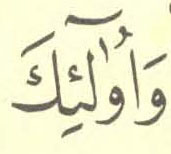 وَأُولَٰئِكَ